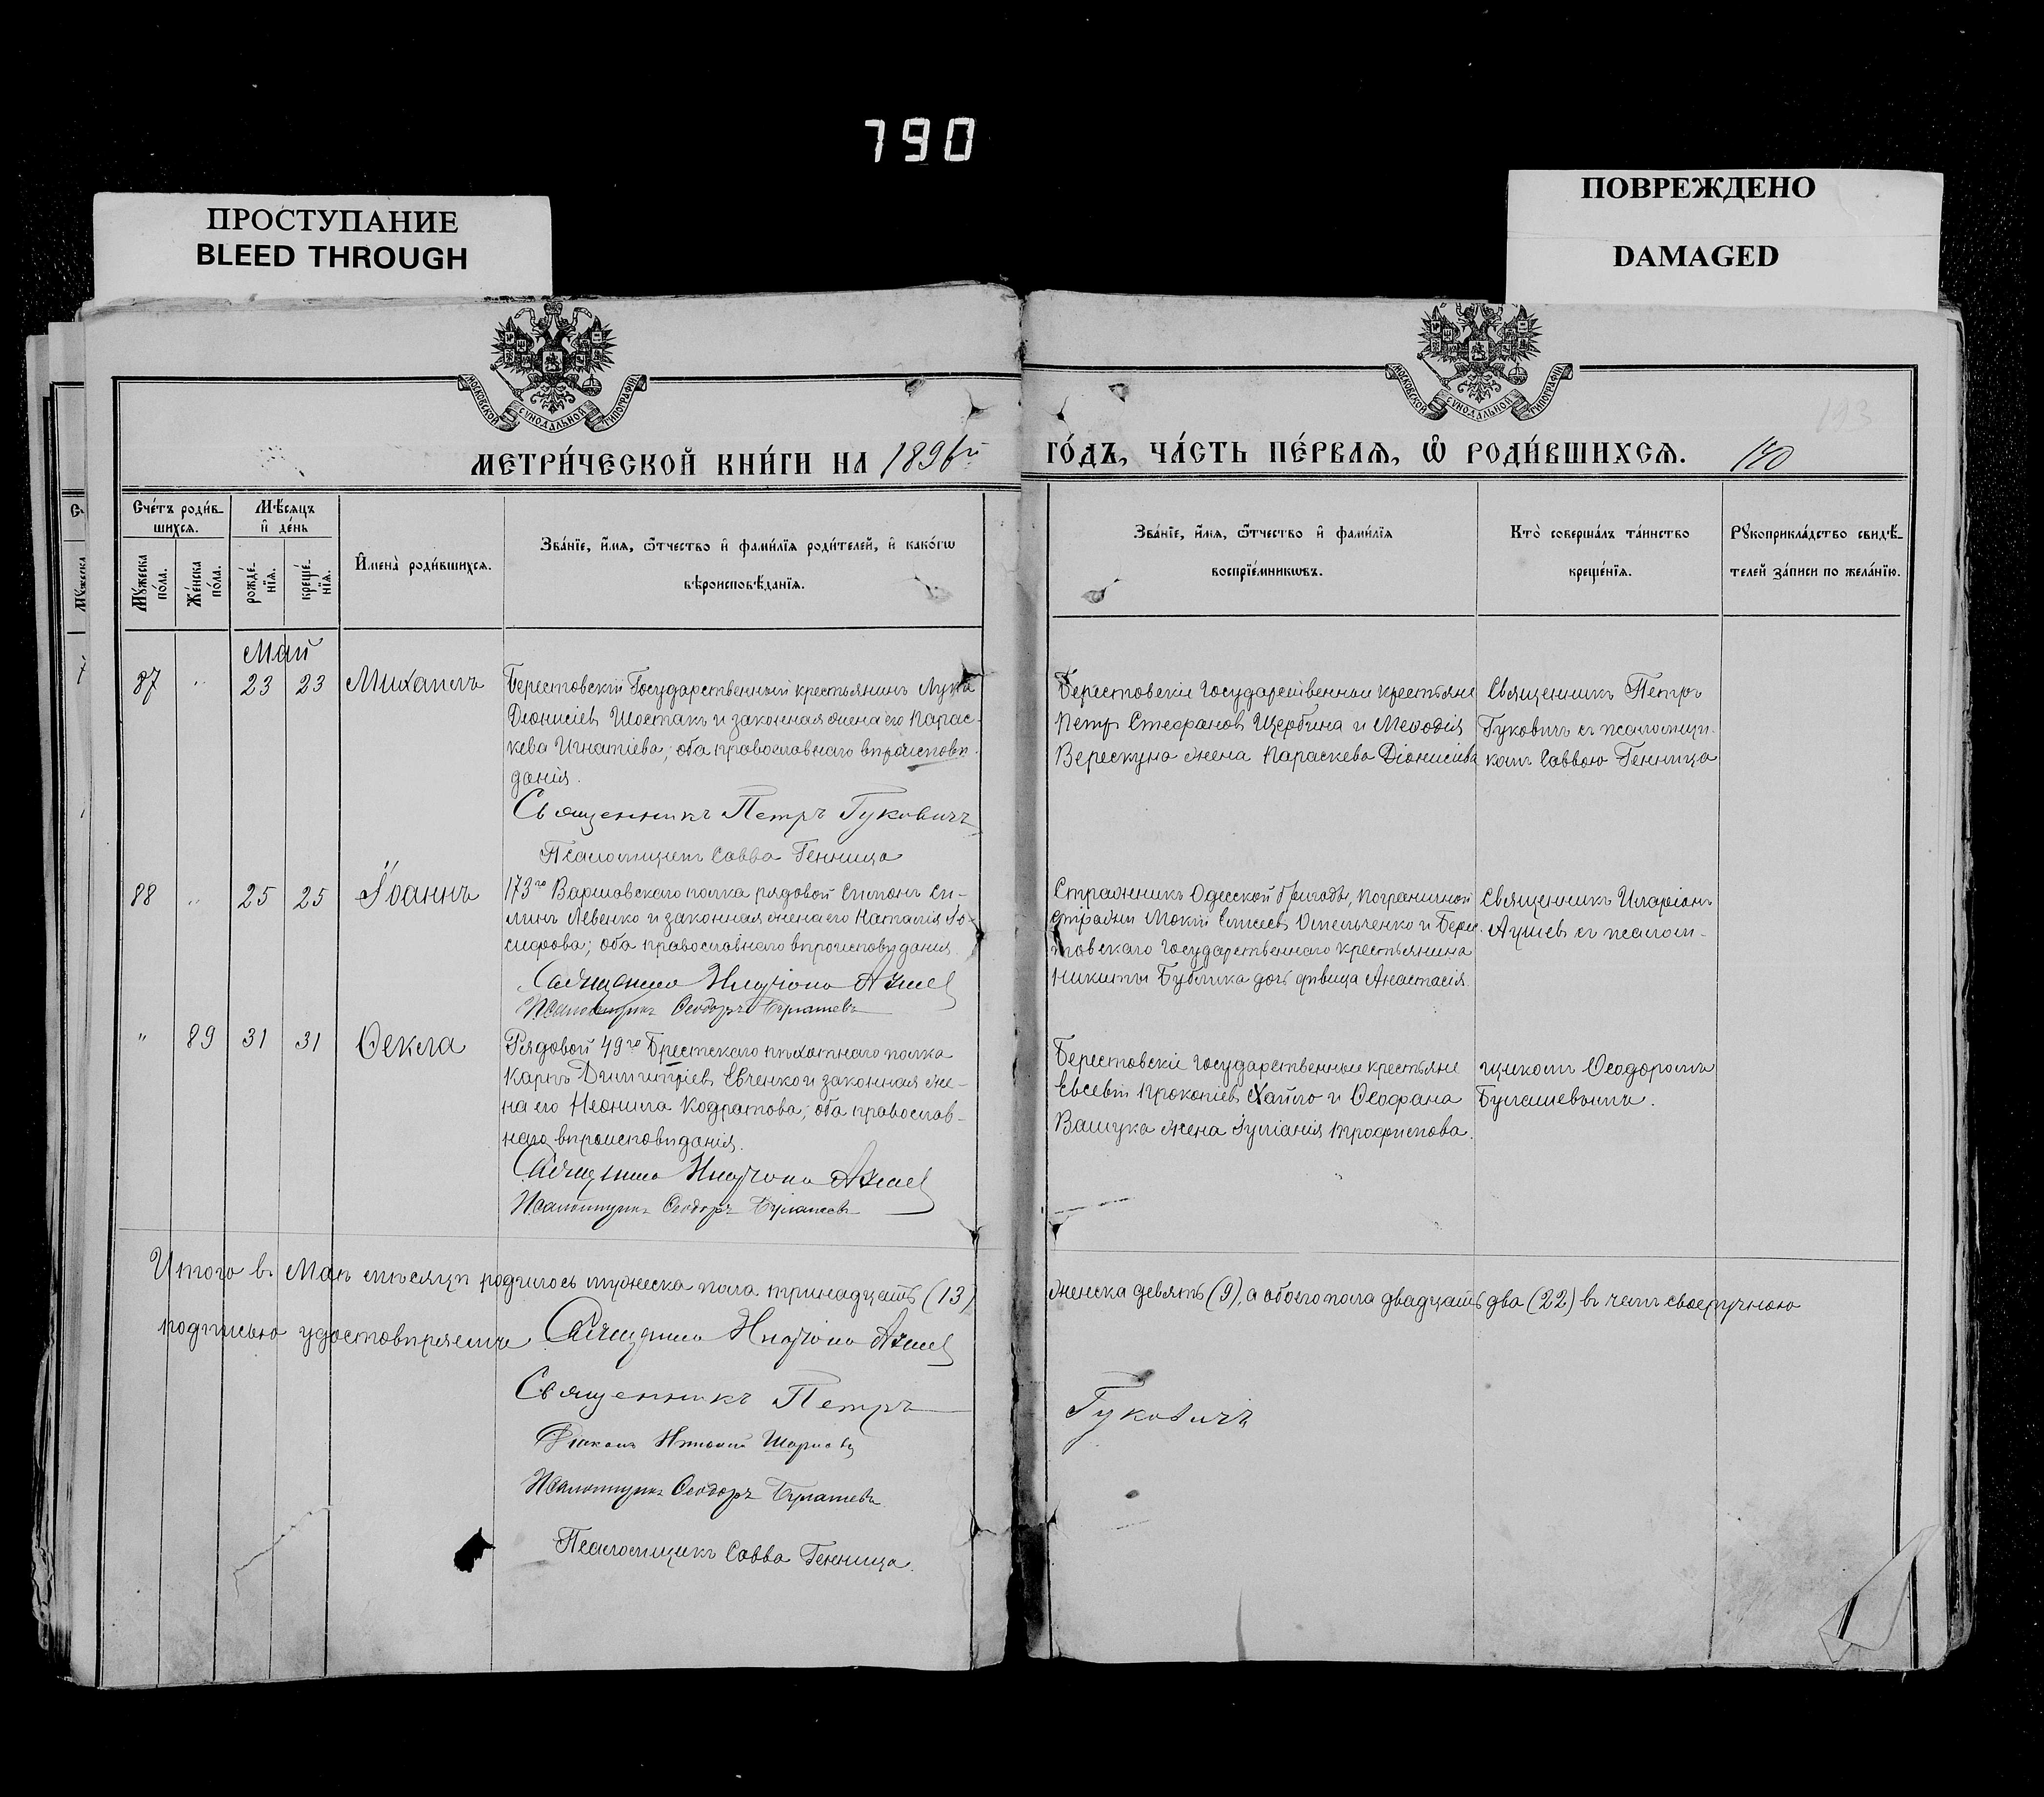 790
ПРОСТУПАНИЕ
BLEED THROUGH
ПОВРЕЖДЕНО
DAMAGED
МОСКОВСКОЙ СѴНОДАЛЬНОЙ ТИПОГРАФІИ
МОСКОВСКОЙ СѴНОДАЛЬНОЙ ТИПОГРАФІИ
193
МЕТРИ́ЧЕСКОЙ КНИ́ГИ НА 1896й
ГО́ДЪ, ЧА́СТЬ ПЕ́РВАѦ, Ѽ РОДИ́ВШИХСѦ. 140
Сче́тъ роди́в-
шихся.
Мѣ́сяцъ
и де́нь
Мꙋ́жеска по́ла.
Же́нска по́ла.
рожде́-нїя.
креще́-нїя.
Имена̀ роди́вшихся.
Зва́нїе, и́мя, ѻ́тчество и фами́лїя роди́телей, и како́гѡ
вѣроисповѣ́данїя.
Зва́нїе, и́мя, ѻ́тчество и фами́лїя
воспрїе́мникѡвъ.
Кто̀ соверша́лъ та́инство
креще́нїя.
Рꙋкоприкла́дство свидѣ́-
телей за́писи по жела́нїю.
Май
87 " 23 23 Михаилъ
Берестовскій Государственный крестьянинъ Лука
Діонисіев Шостакъ и законная жена его Парас-
кева Игнатіева; оба православнаго вѣроисповѣ-
данія.
Священникъ Петръ Гуковичъ
Псаломщикъ Савва Генница
Берестовскіе Государственные крестьяне
Петръ Стефановъ Щербина и Меѳодія
Верескуна жена Параскева Діонисіева
Священникъ Петръ
Гуковичъ съ псаломщи-
комъ Саввою Генница
88 " 25 25 Іоаннъ
173го Варшавскаго полка рядовой Симонъ Си-
минъ Левенко и законная жена его Наталія Іо-
сифова; оба православнаго вѣроисповѣданія
Священникъ Иларіонъ
Псаломщикъ Ѳеодоръ Булашевъ
Стражникъ Одесской бригады, Пограничной
стражи Мокій Елисеев Омельченко и Бере-
товскаго Государственнаго крестьянина
Никиты Бублика дочь дѣвица Анастасія.
Священникъ Иларіонъ
съ псалом-
" 89 31 31 Ѳекла
Рядовой 49го Брестскаго пѣхотнаго полка
Карпъ Димитріев Евченко и законная же-
на его Неонила Кодратова; оба православ-
наго вѣроисповѣданія.
Священникъ Иларіонъ
Псаломщикъ Ѳеодоръ Булашевъ
Берестовскіе Государственные крестьяне
Евсевій Прокопіев Хайло и Ѳеофана
Вашука жена Іуліанія Трофимова.
щикомъ Ѳеодоромъ
Булашевымъ.
Итого въ Маѣ мѣсяцѣ родилось мужеска пола тринадцать (13)
женска девять (9), а обоего пола двадцать два (22) въ чемъ своеручною
подписью удостовѣряемъ Священникъ Иларіонъ
Священникъ Петръ
Гуковичъ
Діаконъ
Псаломщикъ Ѳеодоръ Булашевъ
Псаломщикъ Савва Генница.